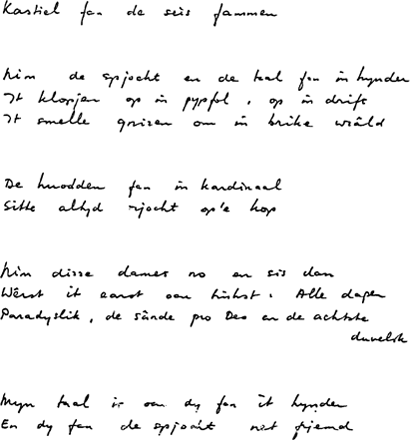 Kastiel fan de seis fammen
Nim de spjocht en de taal fan in hynder
It klopjen op in pypfol, op in drift
It smelle grizen om in brike wrâld
De knodden fan in kardinaal
Sitte altyd rjocht op'e kop
Nim disse dames no en sis dan
Wêrst it earst oan tinkst: Alle dagen
Paradyslik, de sûnde pro Deo en de achtste
duvelsk
Myn taal is oan dy fan it hynder
En dy fan de spjocht net frjemd